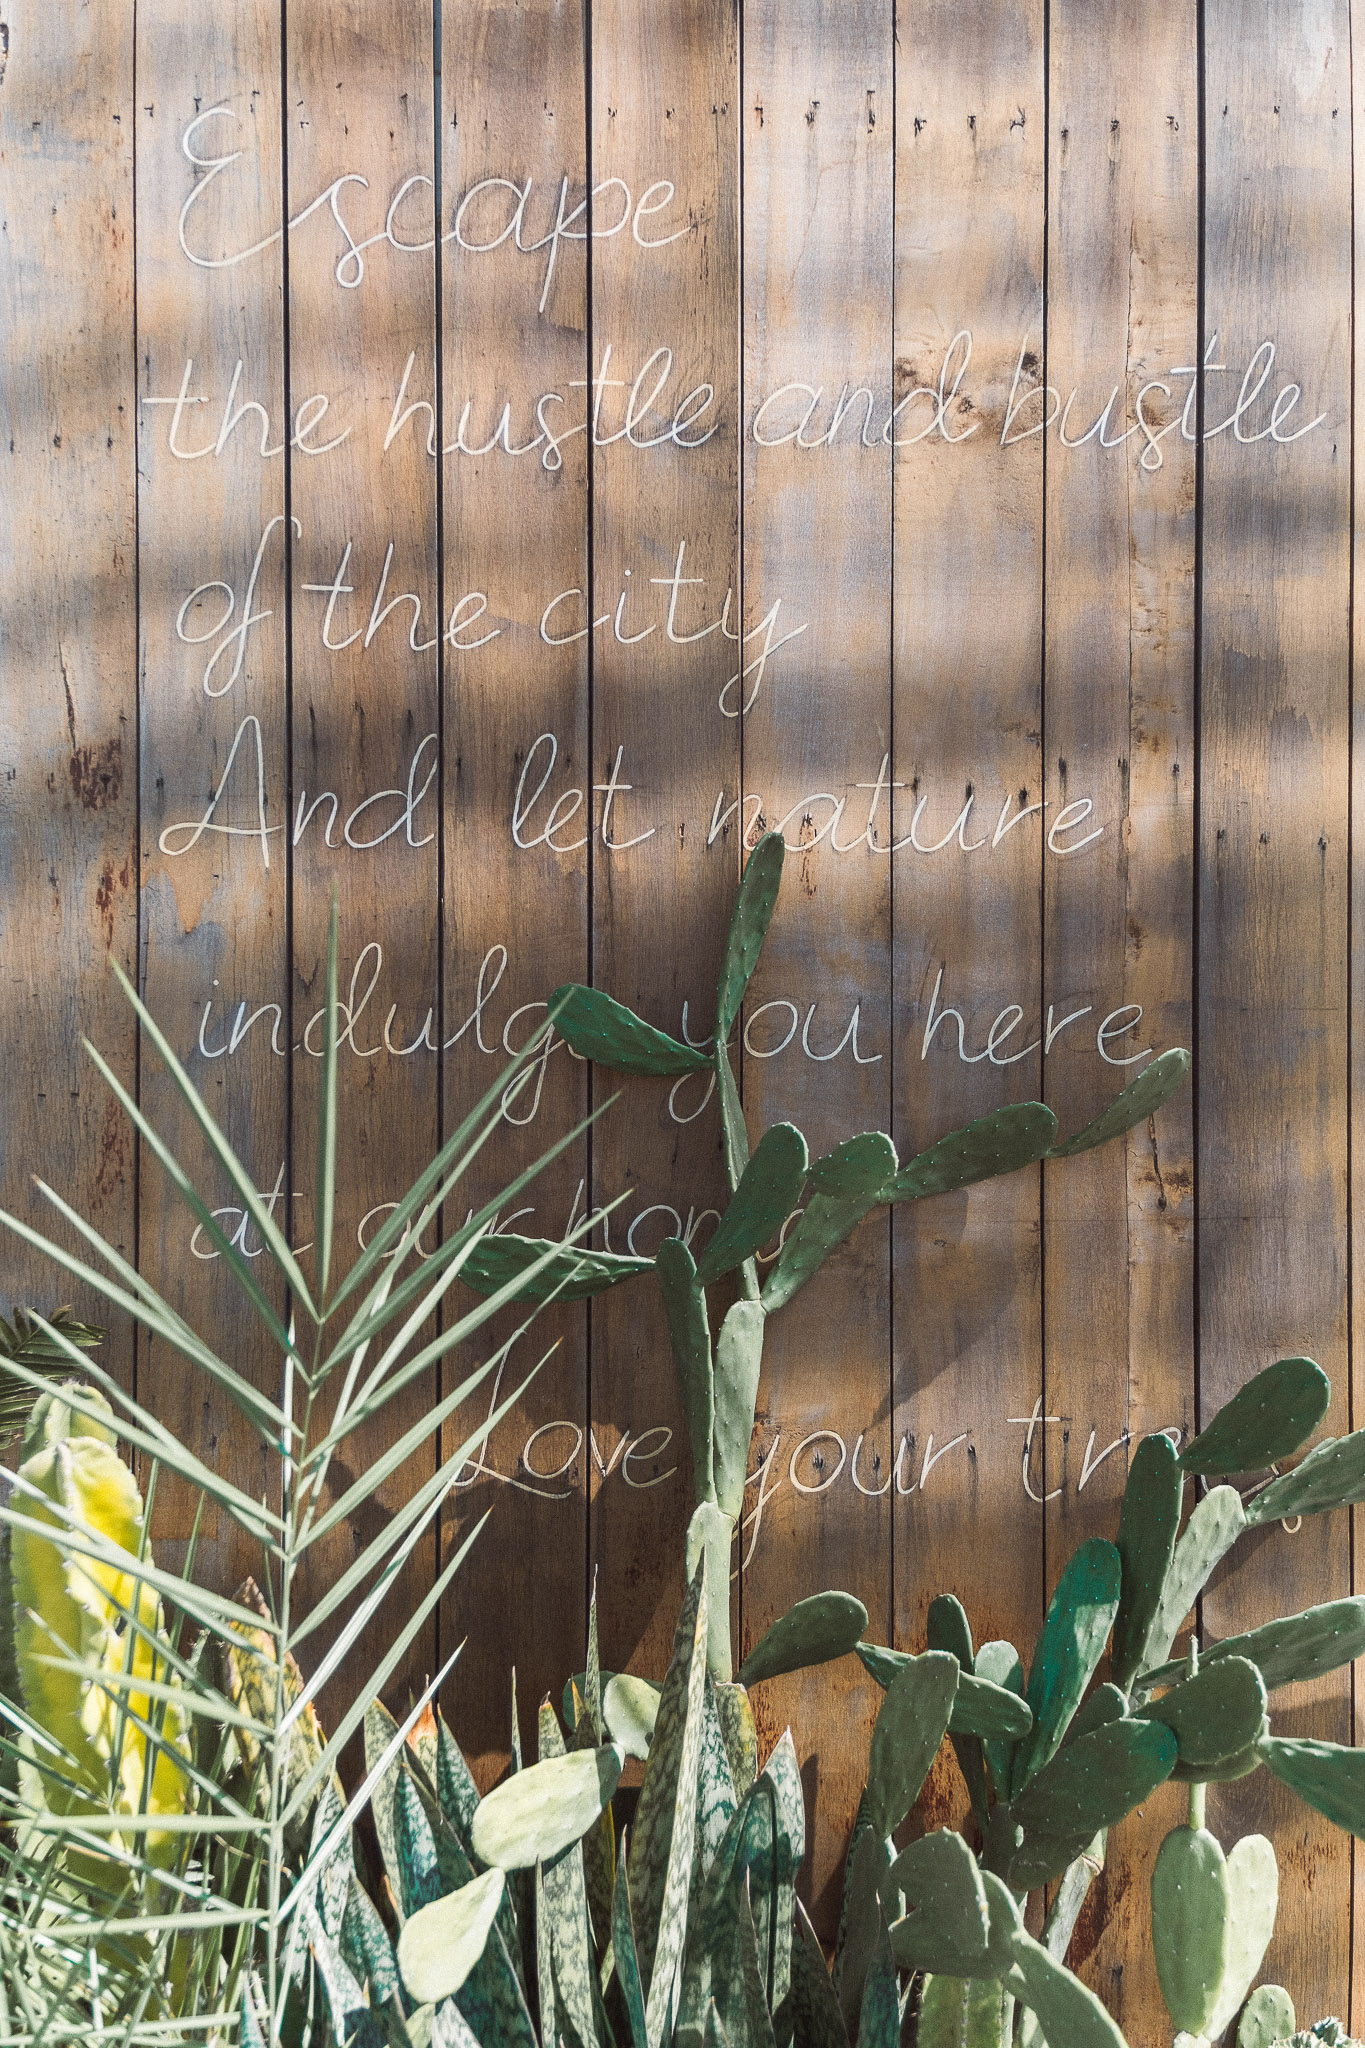 Escape
the hustle and bustle
of the city
And let nature
indulge you here
at our home
Love your